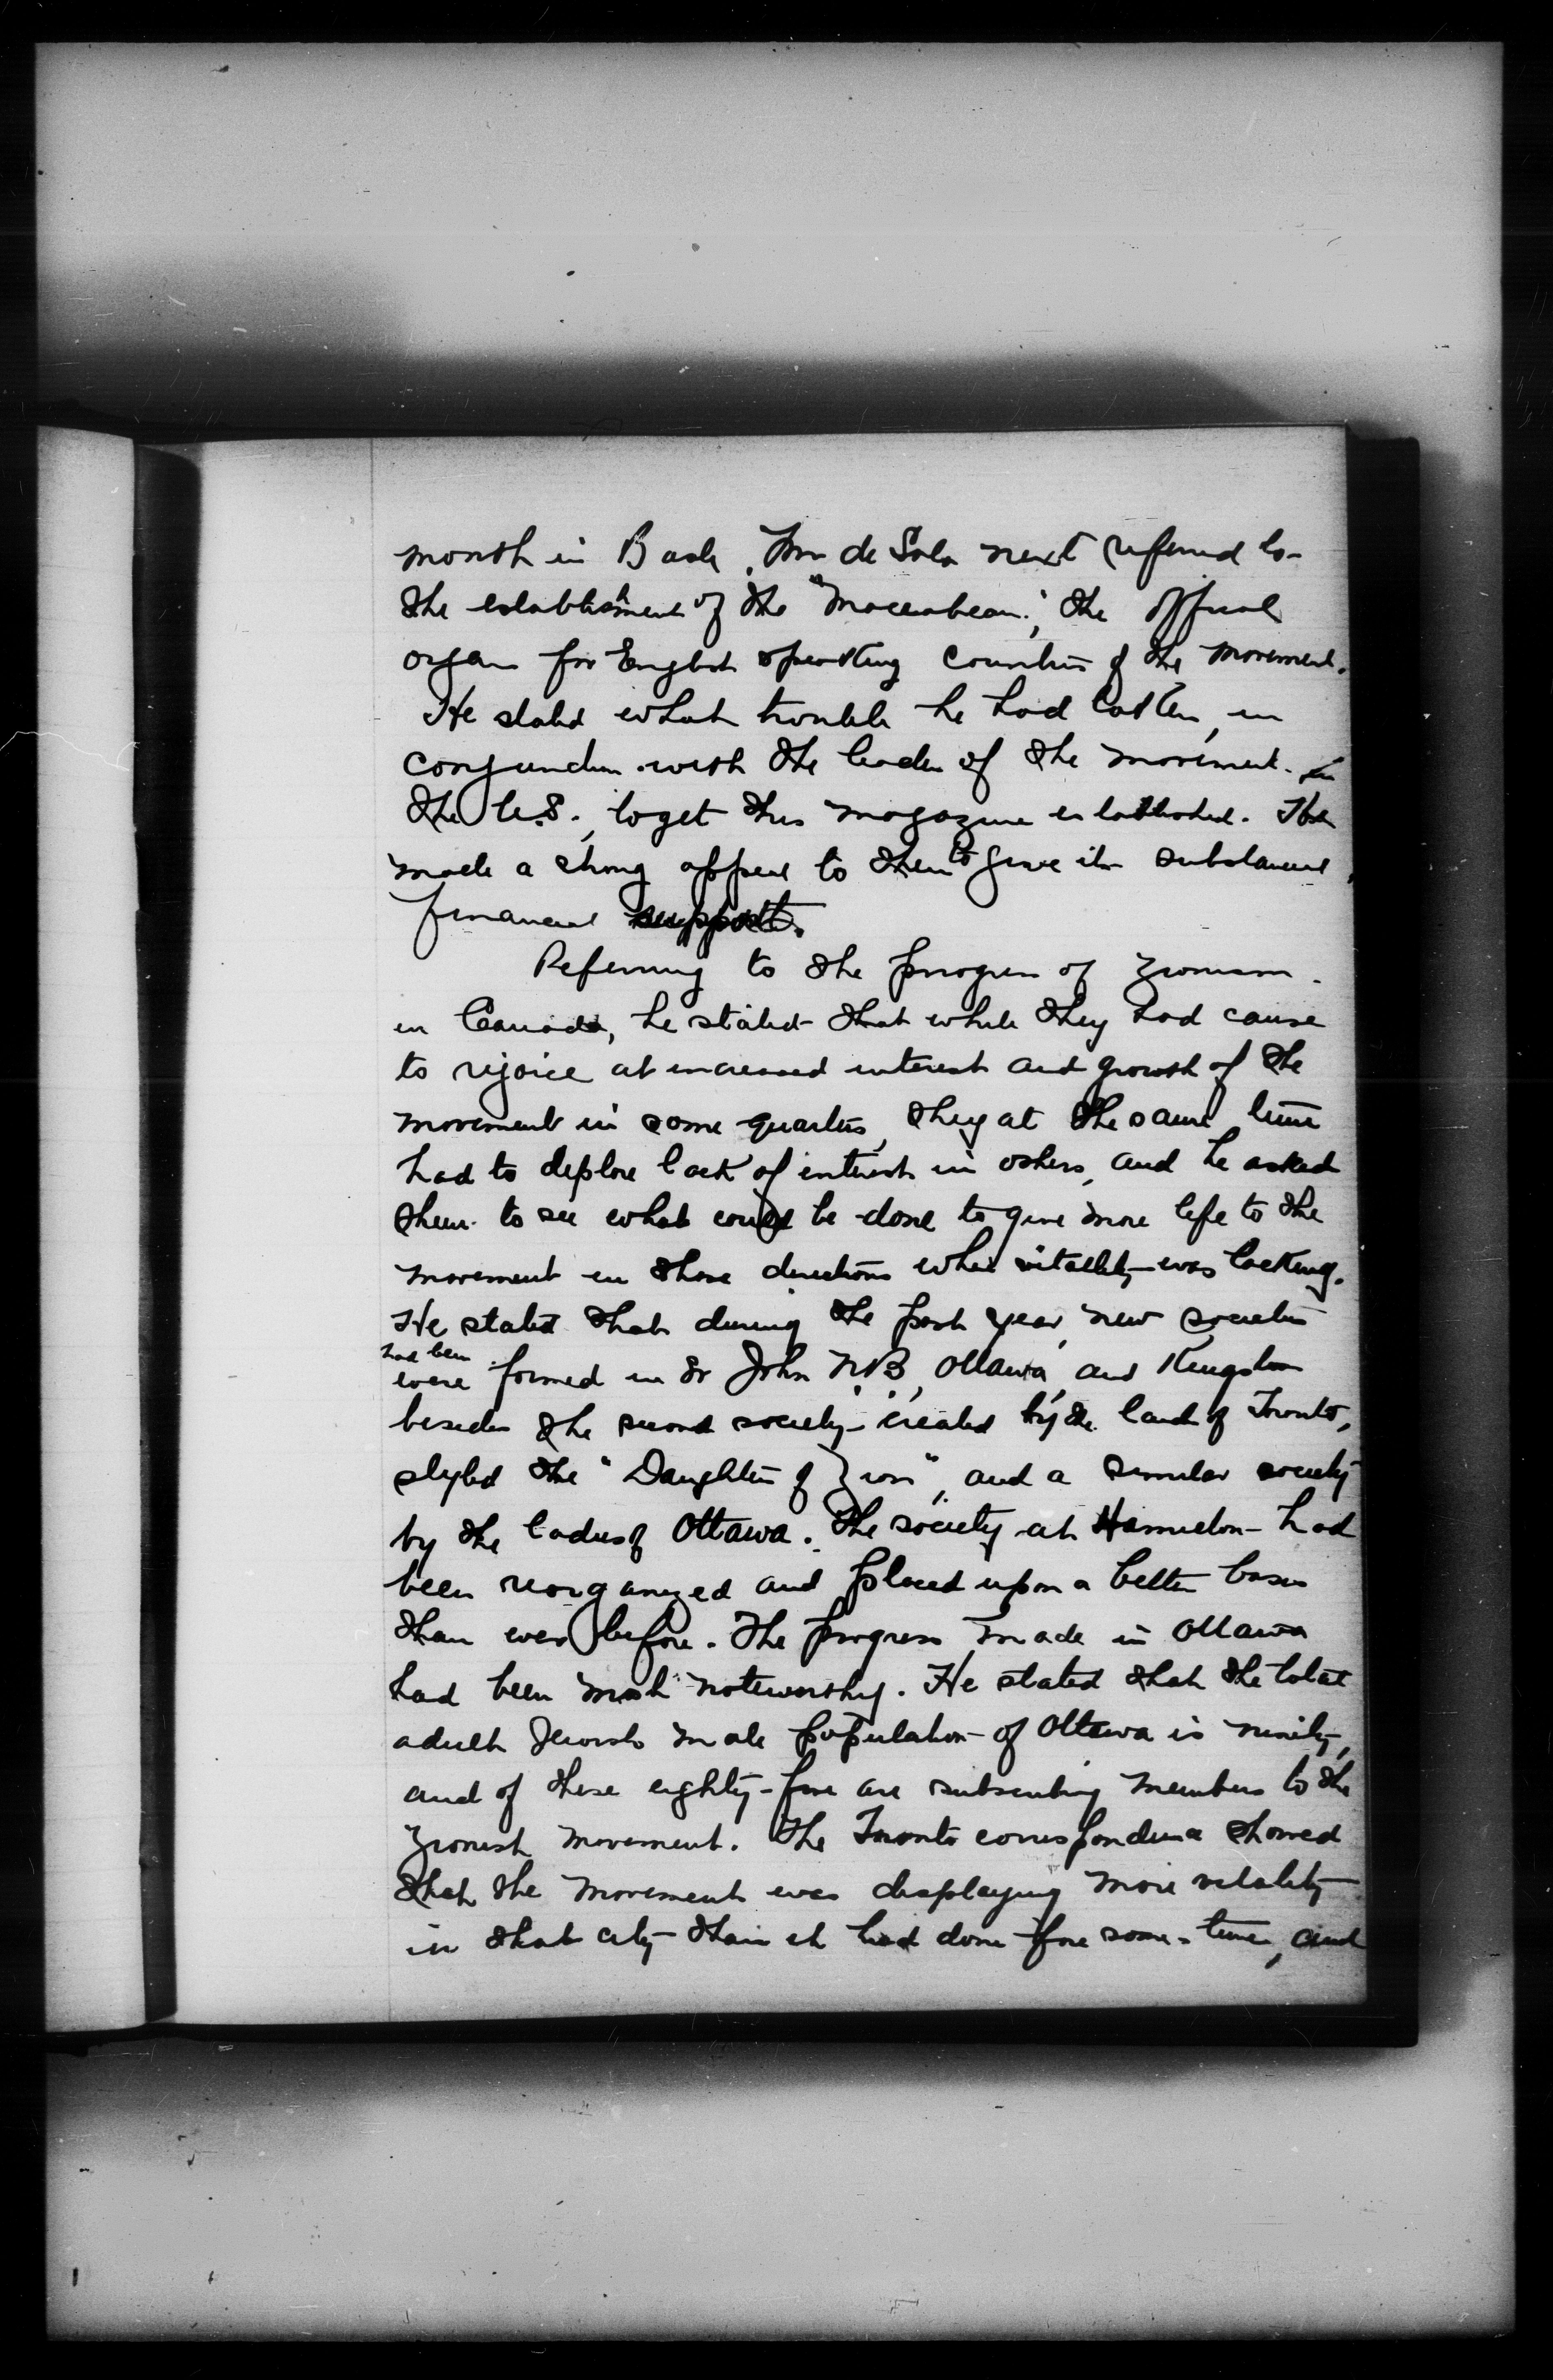 month in Basle. Mr de Sola next referred to
the establishment of the "Maccabean", the official
organ for English speaking countries of the movement.
He stated what trouble he had taken, in
conjunction with the leaders of the movement in
the U.S., to get this magazine established. He
made a strong appeal to them to give it substantial
financial support.
Referring to the progress of Zionism
in Canada, he stated that while they had cause
to rejoice at increased interest and growth of the
movement in some quarters, they at the same time
had to deplore lack of interest in others, and he asked
them to see what could be done to give more life to the
movement in those directions where vitality was lacking.
He stated that during the past year, new societies
had been
were formed in St John N.B, Ottawa, and Kingston
besides the second society created by the ladies of Toronto,
styled the "Daughters of Zion", and a similar society
by the ladies of Ottawa. The society at Hamilton had
been reorganized and placed upon a better basis
than ever before. The progress made in Ottawa
had been most noteworthy. He stated that the total
adult Jewish male population of Ottawa is ninety,
and of these eighty-five are subscribing members to the
Zionist movement. The Toronto correspondence showed
that the movement was displaying more vitality
in that city than it had done for some time, and